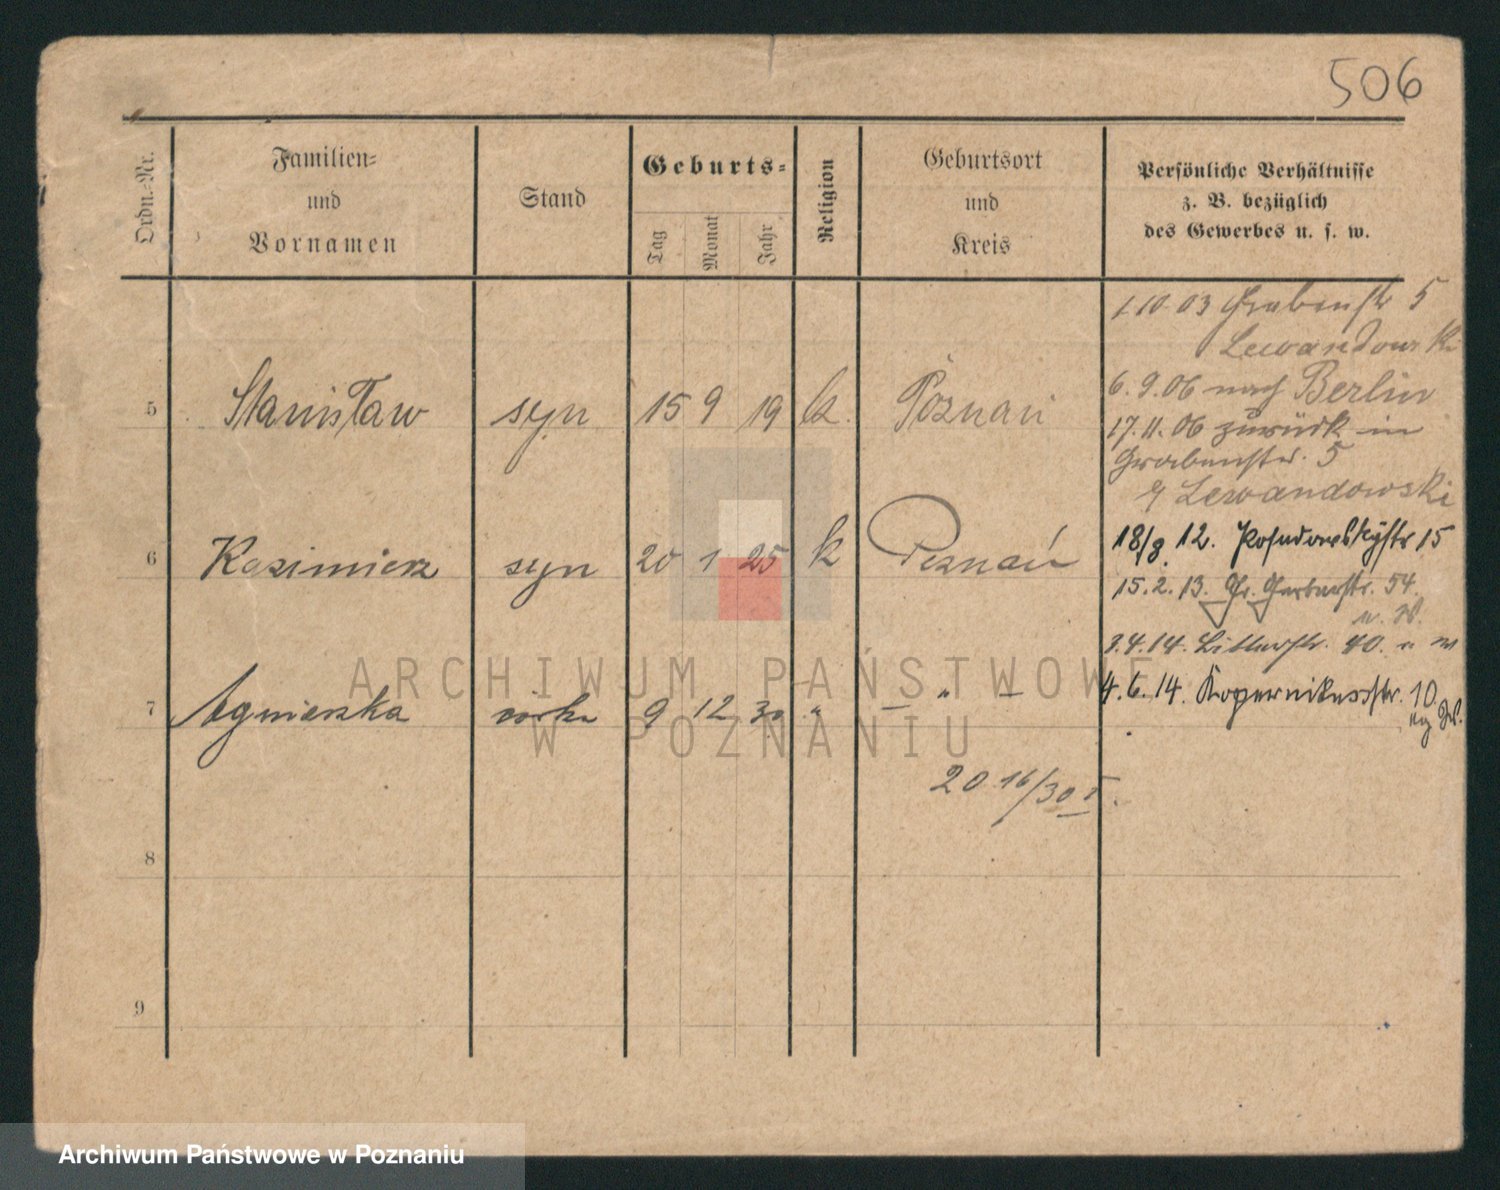 506
Ordn.-Nr.
Familien-
und
Vornamen
Stand
Geburts-
Tag
Monat
Jahr
Religion
Geburtsort
und
Kreis
Persönliche Verhältnisse
z. B. bezüglich
des Gewerbes u. s. w.
5 Stanisław syn 15 9 19 k. Poznań
6 Kazimierz syn 20 1 25 k Poznań
7 Agnieszka córka 9 12 30 " — " —
8
9
1.10.03 Grabenstr 5
Lewandowski
6.9.06 nach Berlin
17.11.06 zurück in
Grabenstr. 5
Lewandowski
18/9 12. Posadowskystr 15
15.2.13. Gr. Gerberstr. 54.
3.4.14. 40.
4.6.14. Kopernikusstr. 10.
20 16/30
ARCHIWUM PAŃSTWOWE
W POZNANIU
Archiwum Państwowe w Poznaniu